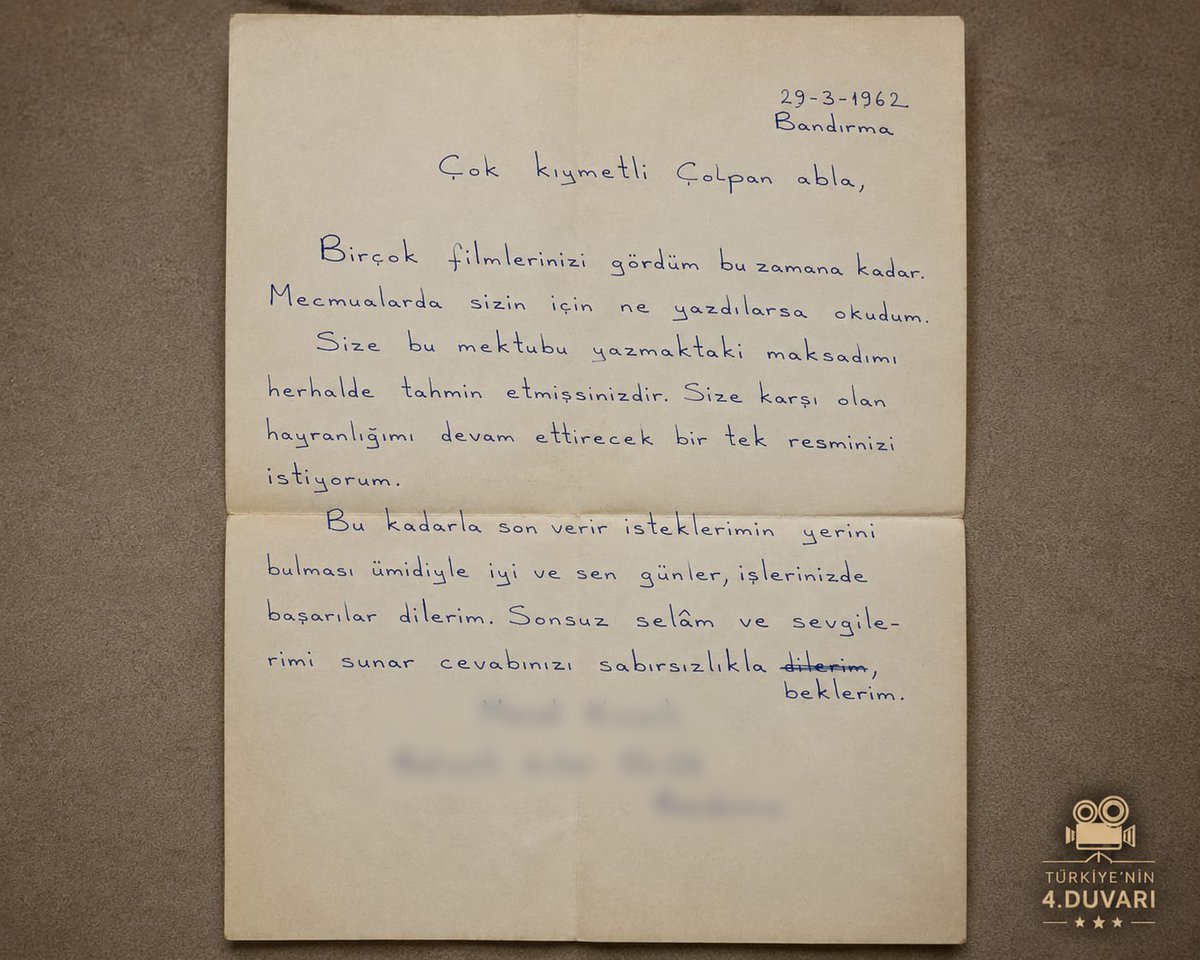 29-3-1962
Bandırma
Çok kıymetli Çolpan abla,
Birçok filmlerinizi gördüm bu zamana kadar.
Mecmualarda sizin için ne yazdılarsa okudum.
Size bu mektubu yazmaktaki maksadımı
herhalde tahmin etmişsinizdir. Size karşı olan
hayranlığımı devam ettirecek bir tek resminizi
istiyorum.
Bu kadarla son verir isteklerimin yerini
bulması ümidiyle iyi ve sen günler, işlerinizde
başarılar dilerim. Sonsuz selâm ve sevgile-
rimi sunar cevabınızı sabırsızlıkla dilerim,
beklerim.
TÜRKİYE'NİN
4.DUVARI